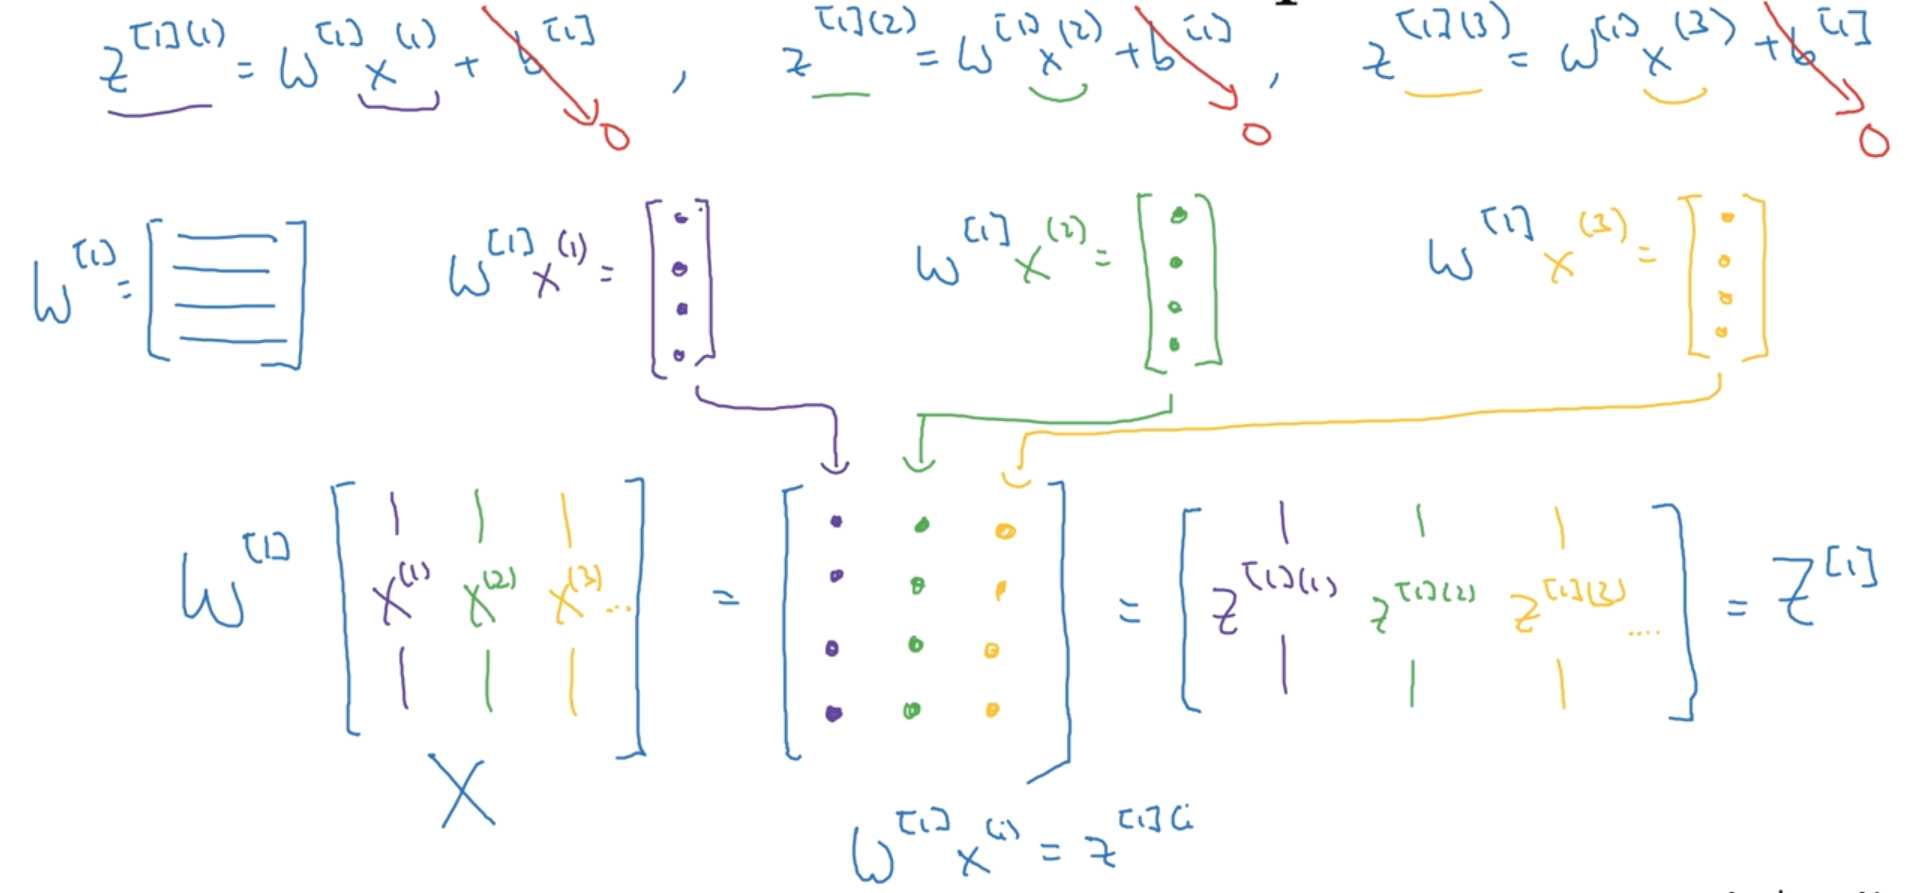 z^[1](1) = W^[1] x^(1) + b^[1] , z^[1](2) = W^[1] x^(2) + b^[1] , z^[1](3) = W^[1] x^(3) + b^[1]
0 0 0
W^[1] = [ ] W^[1] x^(1) = [ ] W^[1] x^(2) = [ ] W^[1] x^(3) = [ ]
W^[1] [ x^(1) x^(2) x^(3) ... ] = [ ] = [ z^[1](1) z^[1](2) z^[1](3) .... ] = Z^[1]
X
W^[1] x^(i) = z^[1](i